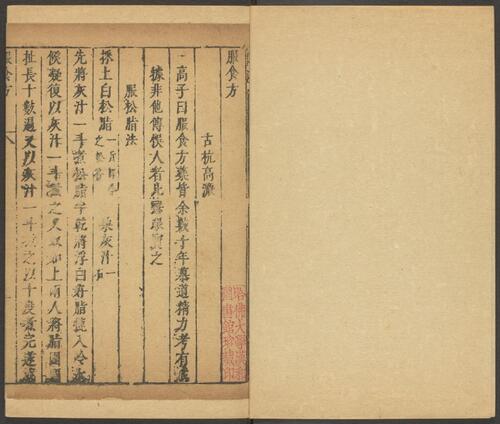 服食方
古杭高濂
高子曰服食方藥皆余數十年慕道精力考有底
據非他傳悞人者比習服寶之
服松脂法
採上白松脂一斤 桑灰汁一石
先將灰汁一斗煮松脂半乾將浮白好脂漉入冷水
候凝復以灰汁一斗煮之又如上兩人將脂團圓
扯長十數遍又以灰汁一斗煮之以十度煮完遂成
服食方
哈佛大學漢和
圖書館珍藏印